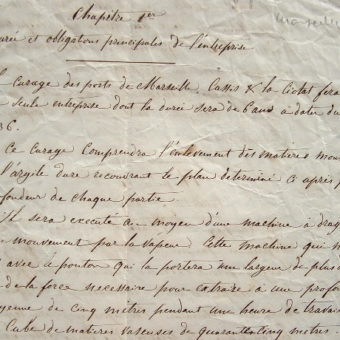 Chapitre 1er
Marseille
durée et obligations principales de l'entreprise
curage des ports de Marseille Cassis & la Ciotat fera
seule entreprise dont la durée sera de 6 ans à dater du
36.
Ce curage comprendra l'enlevement des matieres mou
l'argile dure recouvrant le plan déterminé ci après p
fondeur de chaque partie.
Il sera executé au moyen d'une machine à drag
mouvement par la vapeur Cette machine qui
avec le ponton qui la portera une largeur de plus
de la force necessaire pour extraire à une profon
yenne de cinq mètres pendant une heure de travai
Cube de matieres vaseuses de quarante cinq mètres.